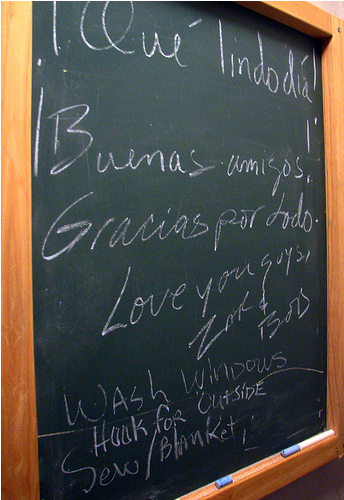 ¡Qué lindo día!
¡Buenas amigos!
Gracias por todo.
Love you guys,
& Bob
WASH WINDOWS
HOOK for OUTSIDE
Sew/Blanket